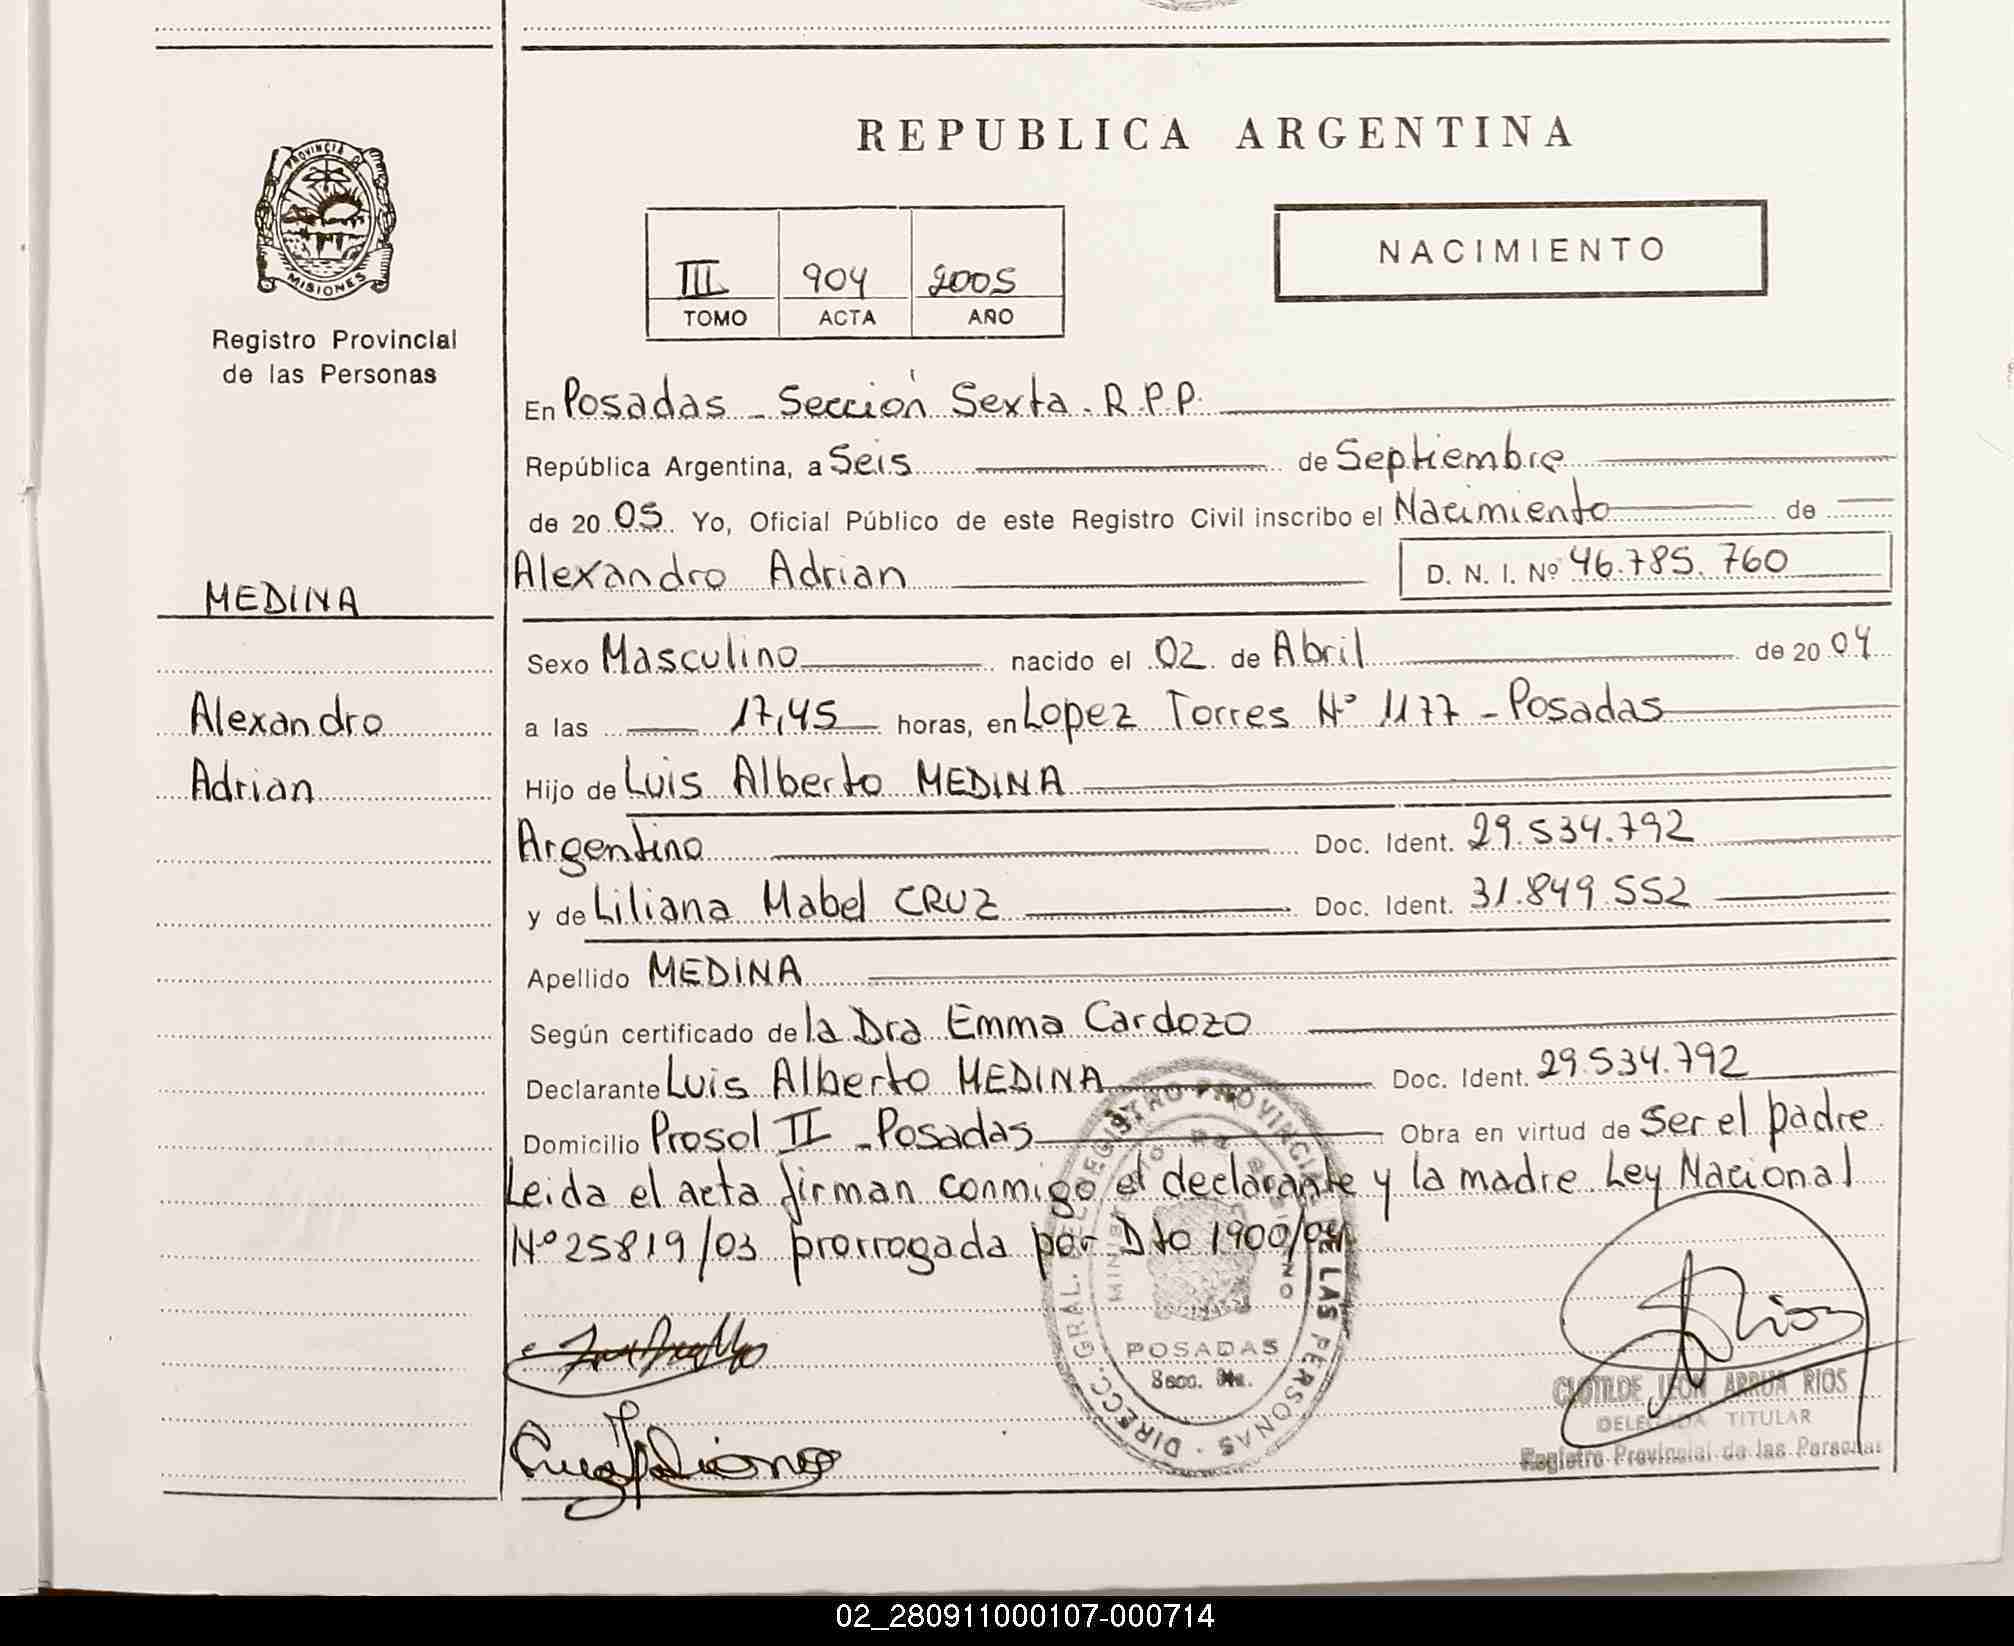 REPUBLICA ARGENTINA
PROVINCIA DE
MISIONES
Registro Provincial
de las Personas
III 904 2005
TOMO ACTA AÑO
NACIMIENTO
En Posadas - Sección Sexta. R.P.P.
República Argentina, a Seis de Septiembre
de 20 05 Yo, Oficial Público de este Registro Civil inscribo el Nacimiento de
Alexandro Adrian D. N. I. Nº 46.785.760
MEDINA
Sexo Masculino nacido el 02 de Abril de 20 04
Alexandro
a las 17,45 horas, en Lopez Torres Nº 1177 - Posadas
Adrian
Hijo de Luis Alberto MEDINA
Argentino Doc. Ident. 29.534.792
y de Liliana Mabel CRUZ Doc. Ident. 31.849.552
Apellido MEDINA
Según certificado de la Dra Emma Cardozo
Declarante Luis Alberto MEDINA Doc. Ident. 29.534.792
Domicilio Prosol II - Posadas Obra en virtud de Ser el padre
Leida el acta firman conmigo el declarante y la madre. Ley Nacional
Nº 25819/03 prorrogada por Dto 1900/04
DIRECC. GRAL. DEL REGISTRO PROVINCIAL DE LAS PERSONAS
MINISTERIO DE GOBIERNO
POSADAS
Secc.
Rios
CLOTILDE LEON ARRUA RIOS
DELEGADA TITULAR
Registro Provincial de las Personas
02_280911000107-000714